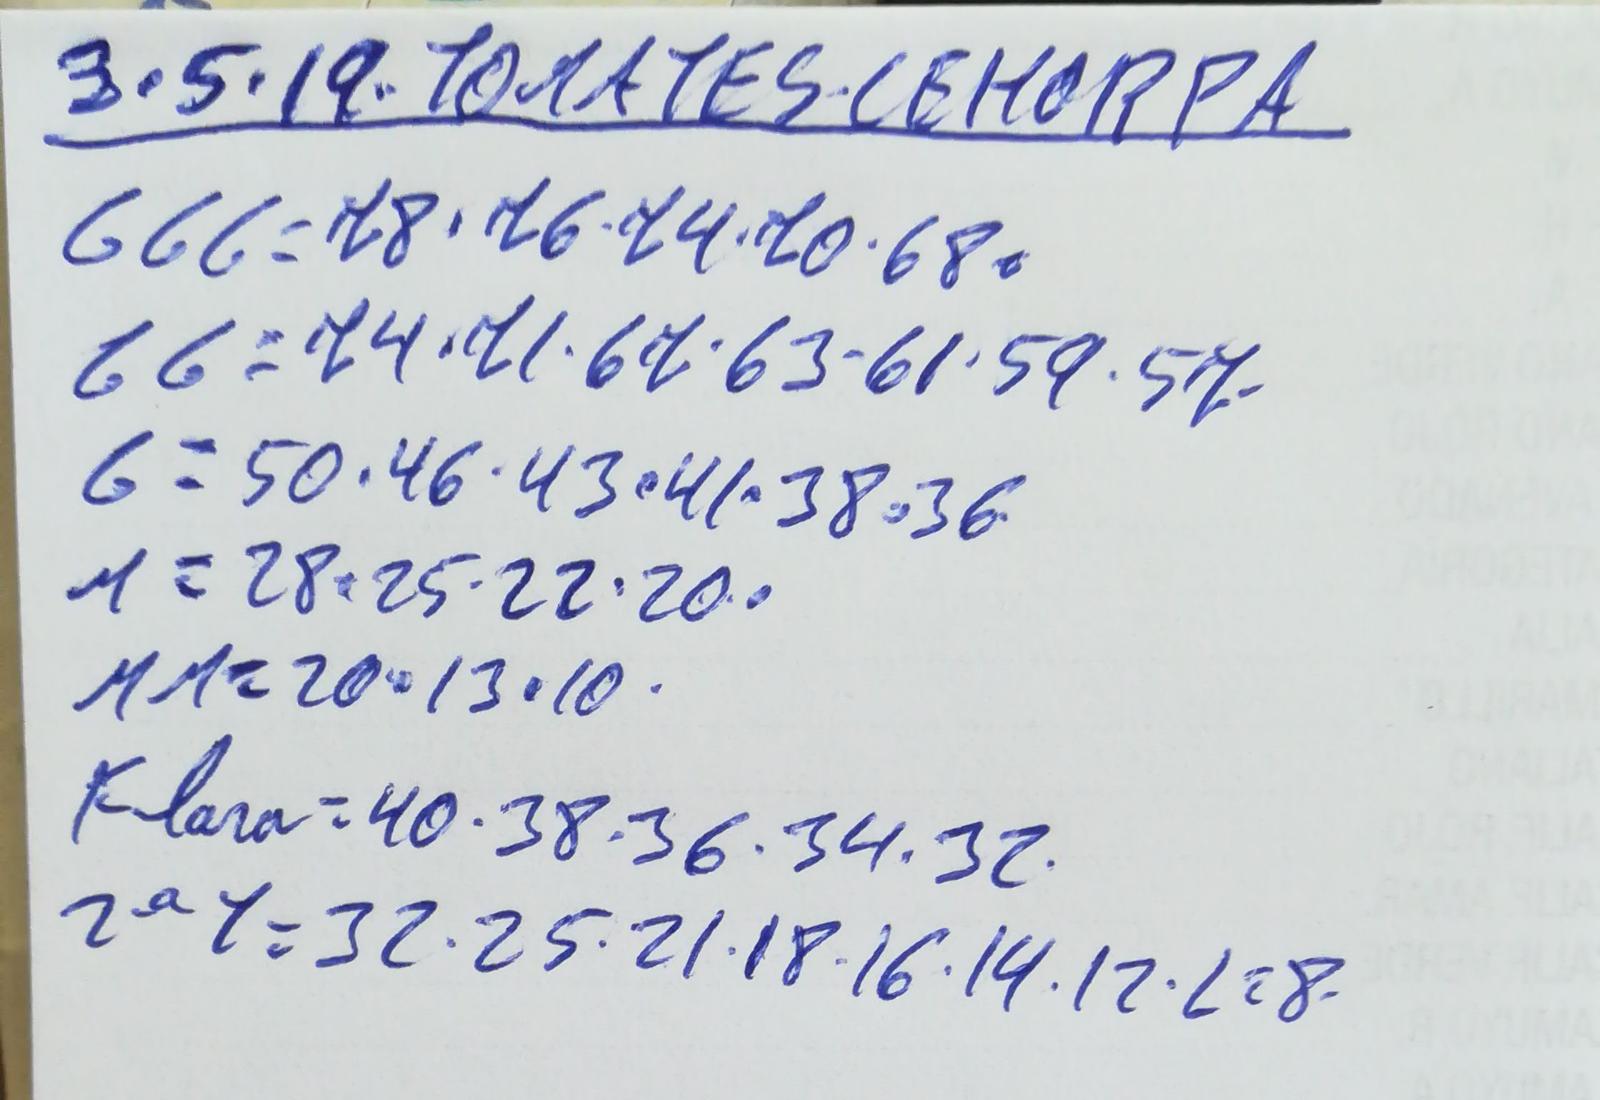 3.5.19. TOMATES-CEHORPA
GGG=78.76.74.70.68.
GG=74.71.67.63-61.59.57.
G=50.46.43.41.38.36.
M=28.25.22.20..
MM=20.13.10.
Klara=40.38.36.34.32.
2ªY=32.25.21.18.16.14.12.L=8.